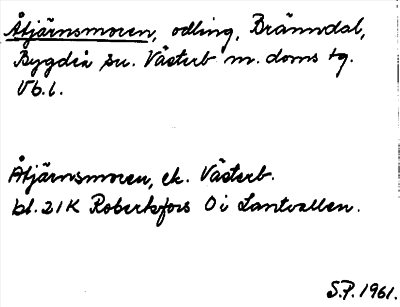 Åtjärnsmoren, odling, Bränndal,
Bygdeå sn. Västerb m. doms tg.
Vb.l.
Åtjärnsmoren, ek. Västerb.
bl. 21K Robertsfors O i Lantvallen.
S.P. 1961.